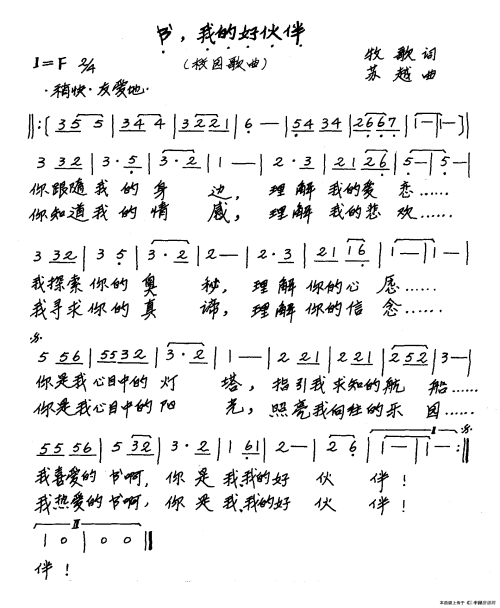 书，我的好伙伴
(校园歌曲)
1=F 2/4
牧歌词
苏越曲
·稍快·友爱地·
‖:(3 5 5|3 4 4|3 2 2 1|6 —|5 4 3 4|2 6 6 7|1 — |1 —)|
3 3 2|3·5|3·2|1 —|2·3|2 1 2 6|5 —|5 —|
你跟随我的身边，理解我的爱恋……
你知道我的情感，理解我的悲欢……
3 3 2|3 5|3·2|2 —|2·3|2 1 1 6|1 —|1 —|
我探索你的奥秘，理解你的心愿……
我寻求你的真谛，理解你的信念……
5 5 6|5 5 3 2|3·2|1 —|2 2 1|2 2 1|2 5 2|3 —|
你是我心目中的灯塔，指引我求知的航船……
你是我心目中的阳光，照亮我向往的乐园……
5 5 5 6|5 3 2|3·2|1 6 1|2 —|2 6|1 —|1 —:‖
我喜爱的书啊，你是我我的好伙伴！
我热爱的书啊，你是我我的好伙伴！
II
1 0|0 0‖
伴！